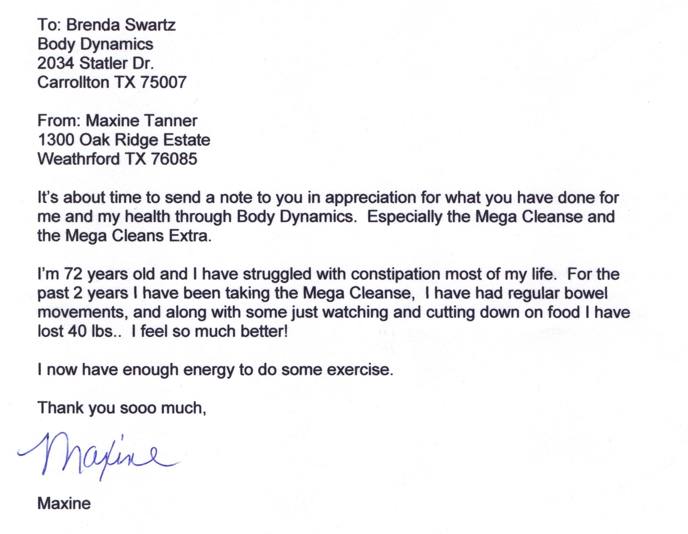 To: Brenda Swartz
Body Dynamics
2034 Statler Dr.
Carrollton TX 75007
From: Maxine Tanner
1300 Oak Ridge Estate
Weathrford TX 76085
It's about time to send a note to you in appreciation for what you have done for
me and my health through Body Dynamics.  Especially the Mega Cleanse and
the Mega Cleans Extra.
I'm 72 years old and I have struggled with constipation most of my life.  For the
past 2 years I have been taking the Mega Cleanse,  I have had regular bowel
movements, and along with some just watching and cutting down on food I have
lost 40 lbs..  I feel so much better!
I now have enough energy to do some exercise.
Thank you sooo much,
Maxine
Maxine